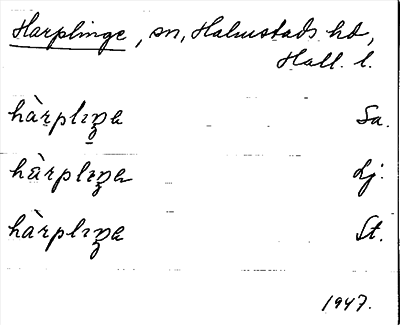 Harplinge, sn, Halmstads hd,
Hall. l.
hàrplıŋa Sa.
hàrplıŋa Lj.
hàrplıŋa St.
1947.